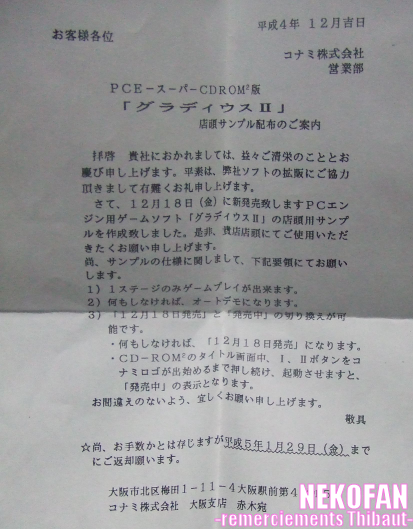 平成4年 12月吉日
お客様各位
コナミ株式会社
営業部
PCE-スーパーCDROM²版
「グラディウスII」
店頭サンプル配布のご案内
拝啓 貴社におかれましては、益々ご清栄のこととお
慶び申し上げます。平素は、弊社ソフトの拡販にご協力
頂きまして有難くお礼申し上げます。
さて、12月18日(金)に新発売致しますPCエン
ジン用ゲームソフト「グラディウスII」の店頭用サンプ
ルを作成致しました。是非、貴店店頭にてご使用いただ
きたくお願い申し上げます。
尚、サンプルの仕様に関しまして、下記要領にてお願い
します。
1) 1ステージのみゲームプレイが出来ます。
2) 何もしなければ、オートデモになります。
3) 「12月18日発売」と「発売中」の切り換えが可
能です。
・何もしなければ、「12月18日発売」になります。
・CD-ROM²のタイトル画面中、I、IIボタンをコ
ナミロゴが出始めるまで押し続け、起動させますと、
「発売中」の表示となります。
お間違えのないよう、宜しくお願い申し上げます。
敬具
☆尚、お手数かとは存じますが平成5年1月29日(金)まで
にご返却願います。
大阪市北区梅田1-11-4大阪駅前第4
コナミ株式会社 大阪支店 赤木宛
NEKOFAN
-remerciements Thibaut-